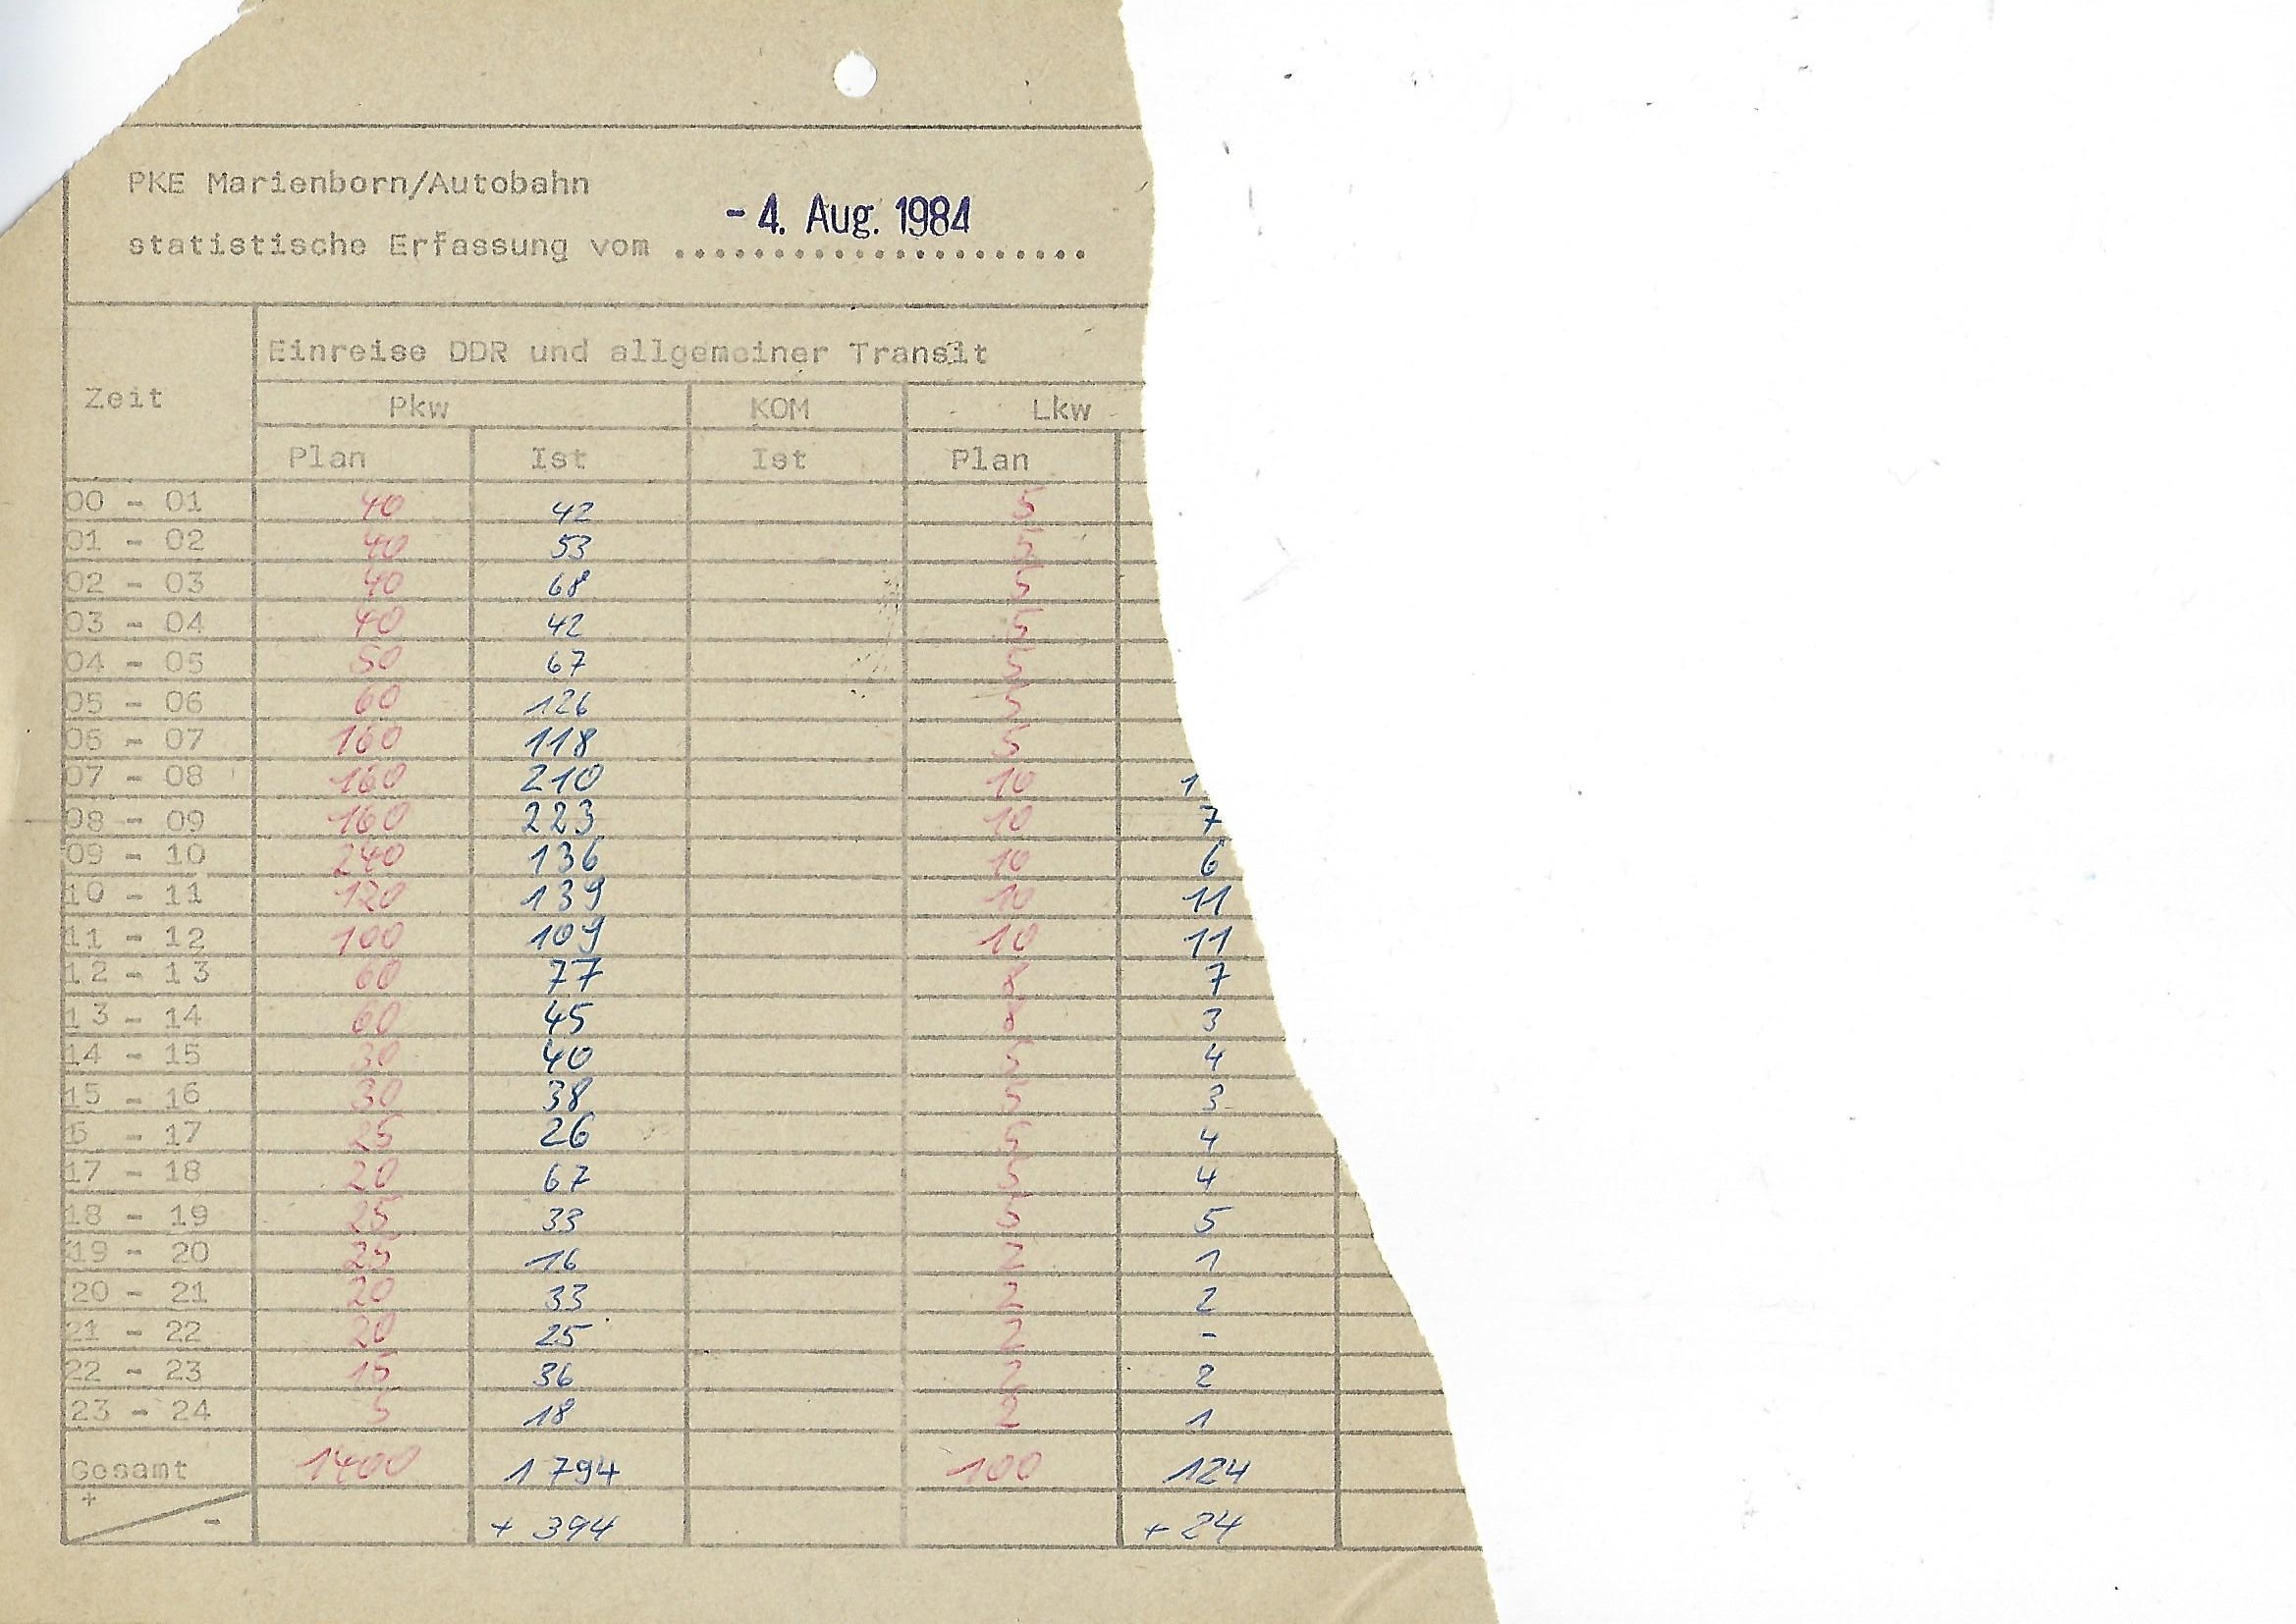 PKE Marienborn/Autobahn
- 4. Aug. 1984
statistische Erfassung vom .....................
Einreise DDR und allgemeiner Transit
Zeit
Pkw KOM Lkw
Plan Ist Ist Plan
00 - 01 40 42 5
01 - 02 40 53 5
02 - 03 40 68 5
03 - 04 40 42 5
04 - 05 50 67 5
05 - 06 60 126 5
06 - 07 160 118 5
07 - 08 160 210 10 1
08 - 09 160 223 10 7
09 - 10 240 136 10 6
10 - 11 120 139 10 11
11 - 12 100 109 10 11
12 - 13 60 77 8 7
13 - 14 60 45 8 3
14 - 15 30 40 5 4
15 - 16 30 38 5 3
6 - 17 25 26 5 4
17 - 18 20 67 5 4
18 - 19 25 33 5 5
19 - 20 25 16 2 1
20 - 21 20 33 2 2
21 - 22 20 25 2 -
22 - 23 15 36 2 2
23 - 24 5 18 2 1
Gesamt 1400 1794 100 124
+ - + 394 + 24